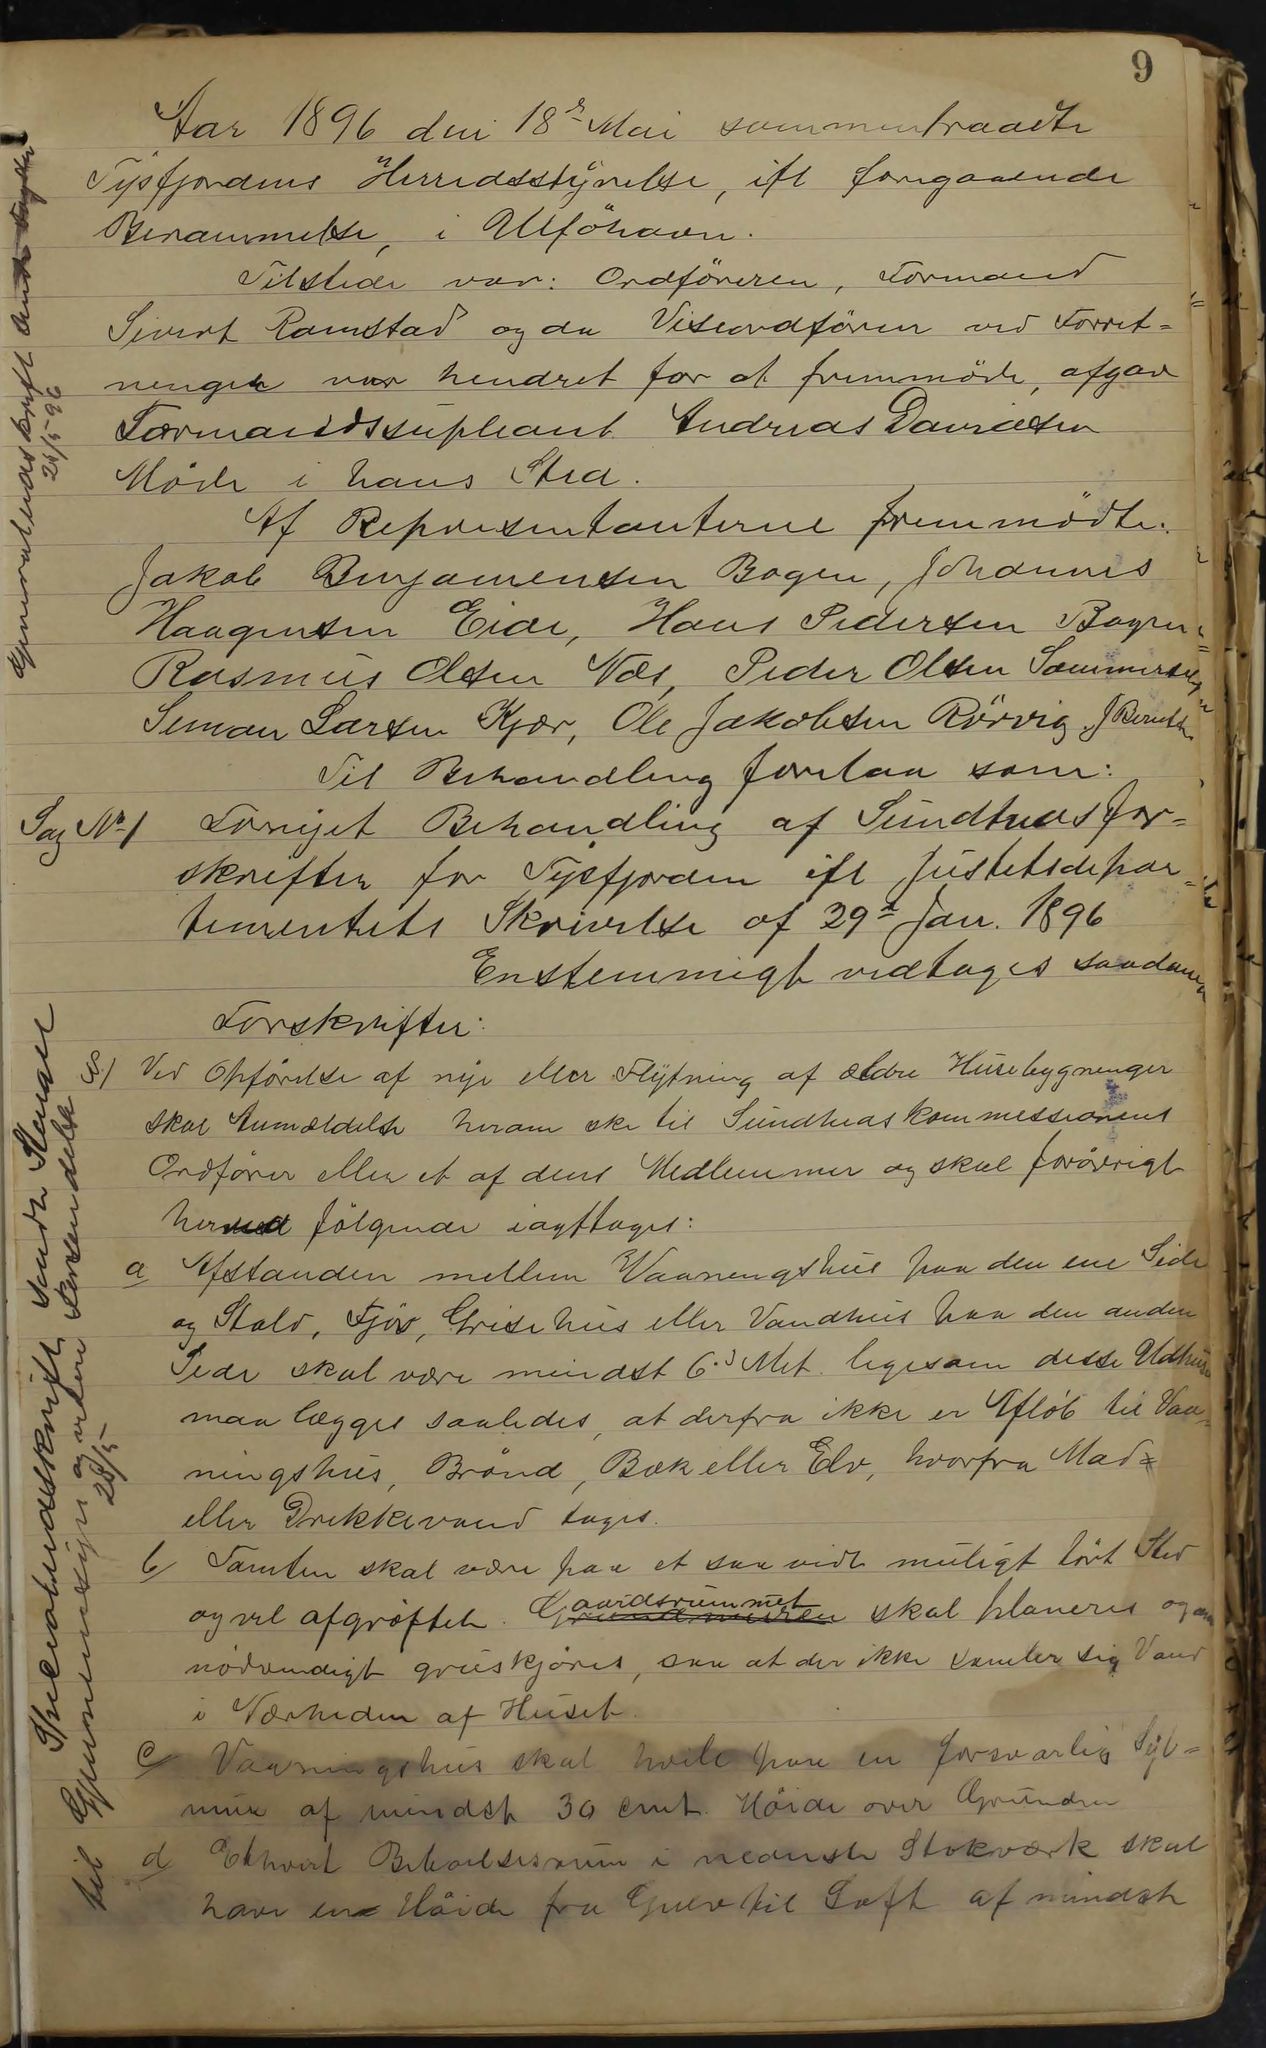 9
Aar 1896 den 18de Mai sammentraadte
Tysfjordens Herredsstyrelse, ifl foregaaende
Berammelse, i Ulföhavn.
Tilstede var: Ordföreren, Formand
Sivert Ramstad og da Viseordförer ved Forret=
ningen var hendret for at fremmöde, afgav
Formandssupleant Andreas Davidsen
Möde i hans Sted.
Af Representanterne fremmödte:
Jakob Benjamensen Bogen, Johannes
Haagensen Eide, Hans Pedersen Bogen
Rasmus Olsen Næs, Peder Olsen Sommersel
Seman Larsen Kjær, Ole Jakobsen Rörvig, J Berntsen
Til Behandling forelaa som:
Sag No 1 Fornyet Behandling af Sundhedsfor=
skrifter for Tysfjorden ifl Justetsdepar=
tementets Skrivelse af 29de Jan. 1896
Enstemmigt vedtages saadanne
Forskrifter:
Ved Opförelse af nye eller Flytning af ældre Husebygnenger
skal Anmældelse herom ske til Sundhedskommessionens
Ordförer eller et af dens Medlemmer og skal forövrigt
herved fölgende iagttages:
a Afstanden mellem Vaaningshus paa den ene Side
og Stald, Fjös, Grisehus eller Vandhus paa den anden
Side skal være mindst 6.3 Met. ligesom desse Udhuse
maa lægges saaledes, at derfra ikke er Aflöb til Vaa=
ningshus, Brönd, Bæk eller Elv, hvorfra Mad=
eller Drikkevand tages.
b/ Tomten skal være paa et saa vidt muligt tört Sted
og vel afgröftet. Gaardsrummet skal planeres og om
nödvendigt gruskjöres, saa at der ikke samler sig Vand
i Nærheden af Huset.
c/ Vaaningshus skal hvile paa en forsvarlig Syl=
mur af mindst 30 cmt. Höide over Grunden
d/ Ethvert Beboelsesrum i nederste Stokværk skal
have en Höide fra Gulv til Loft af mindst
Generaludskrift
28/5 96
Specialudskrift sendt
til Gjennemsyn og videre Forsendelse
28/5